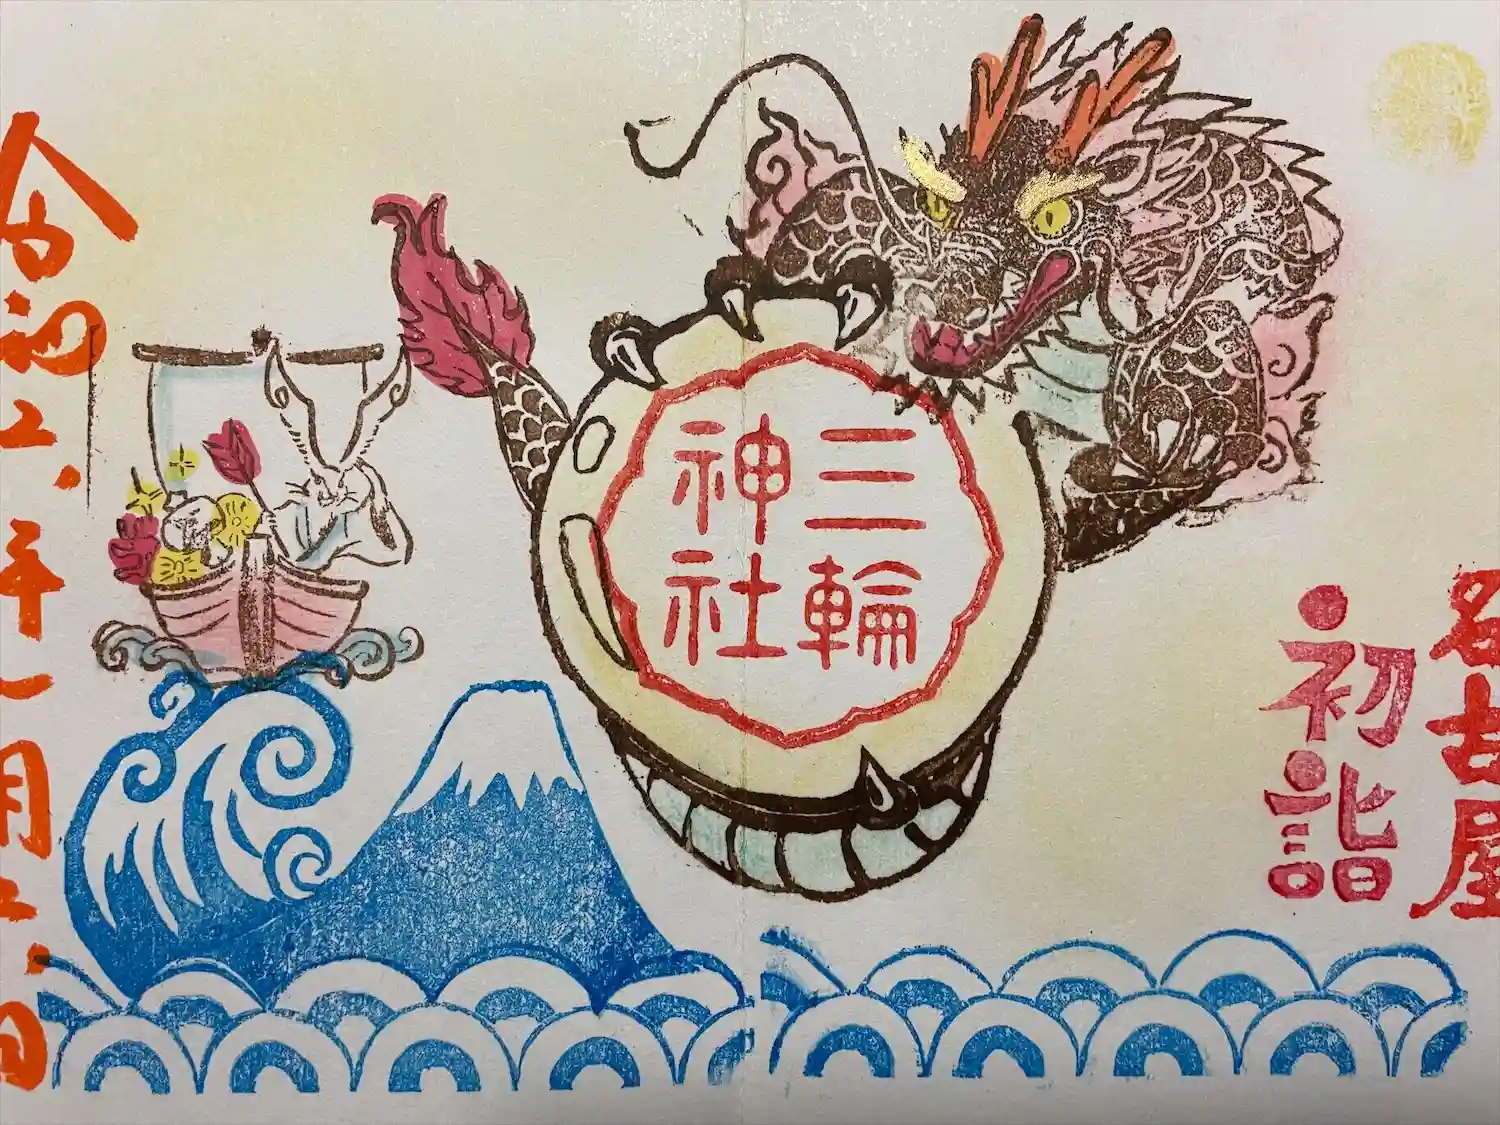 名古屋
初詣
三輪
神社
令和六年一月六日